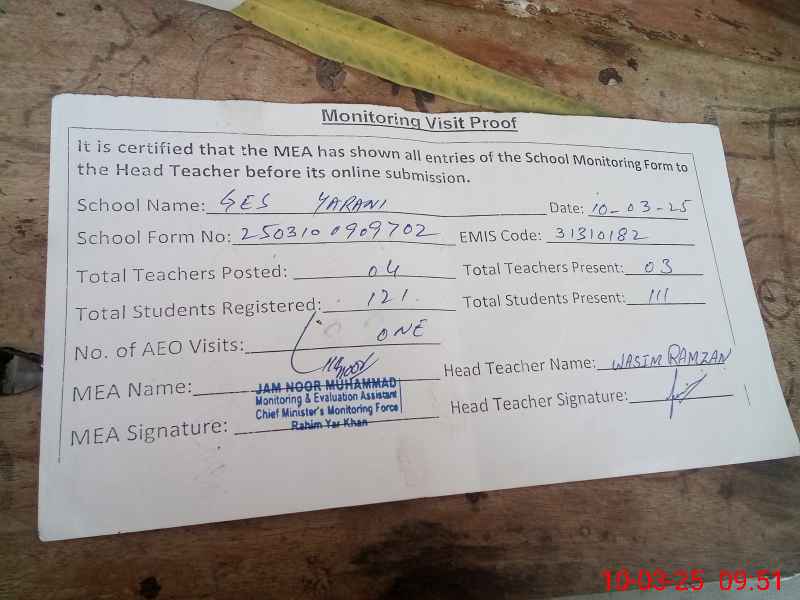 Monitoring Visit Proof
It is certified that the MEA has shown all entries of the School Monitoring Form to
the Head Teacher before its online submission.
School Name: GES YARANI Date: 10-03-25
School Form No: 2503100909702 EMIS Code: 31310182
Total Teachers Posted: 04 Total Teachers Present: 03
Total Students Registered: 121. Total Students Present: 111
No. of AEO Visits: ONE
MEA Name: Head Teacher Name: WASIM RAMZAN
JAM NOOR MUHAMMAD
Monitoring & Evaluation Assistant
Chief Minister's Monitoring Force
Rahim Yar Khan
MEA Signature: Head Teacher Signature:
10-03-25 09:51